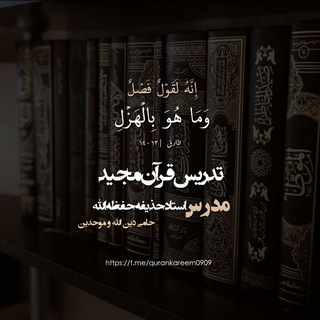 إِنَّهُ لَقَوْلٌ فَصْلٌ
وَمَا هُوَ بِالْهَزْلِ
طارق | ۱۳-۱۴
تدریس قرآن مجید
مدرس استاد حذیفه حفظه الله
حامی دین الله و موحدین
https://t.me/qurankareem0909